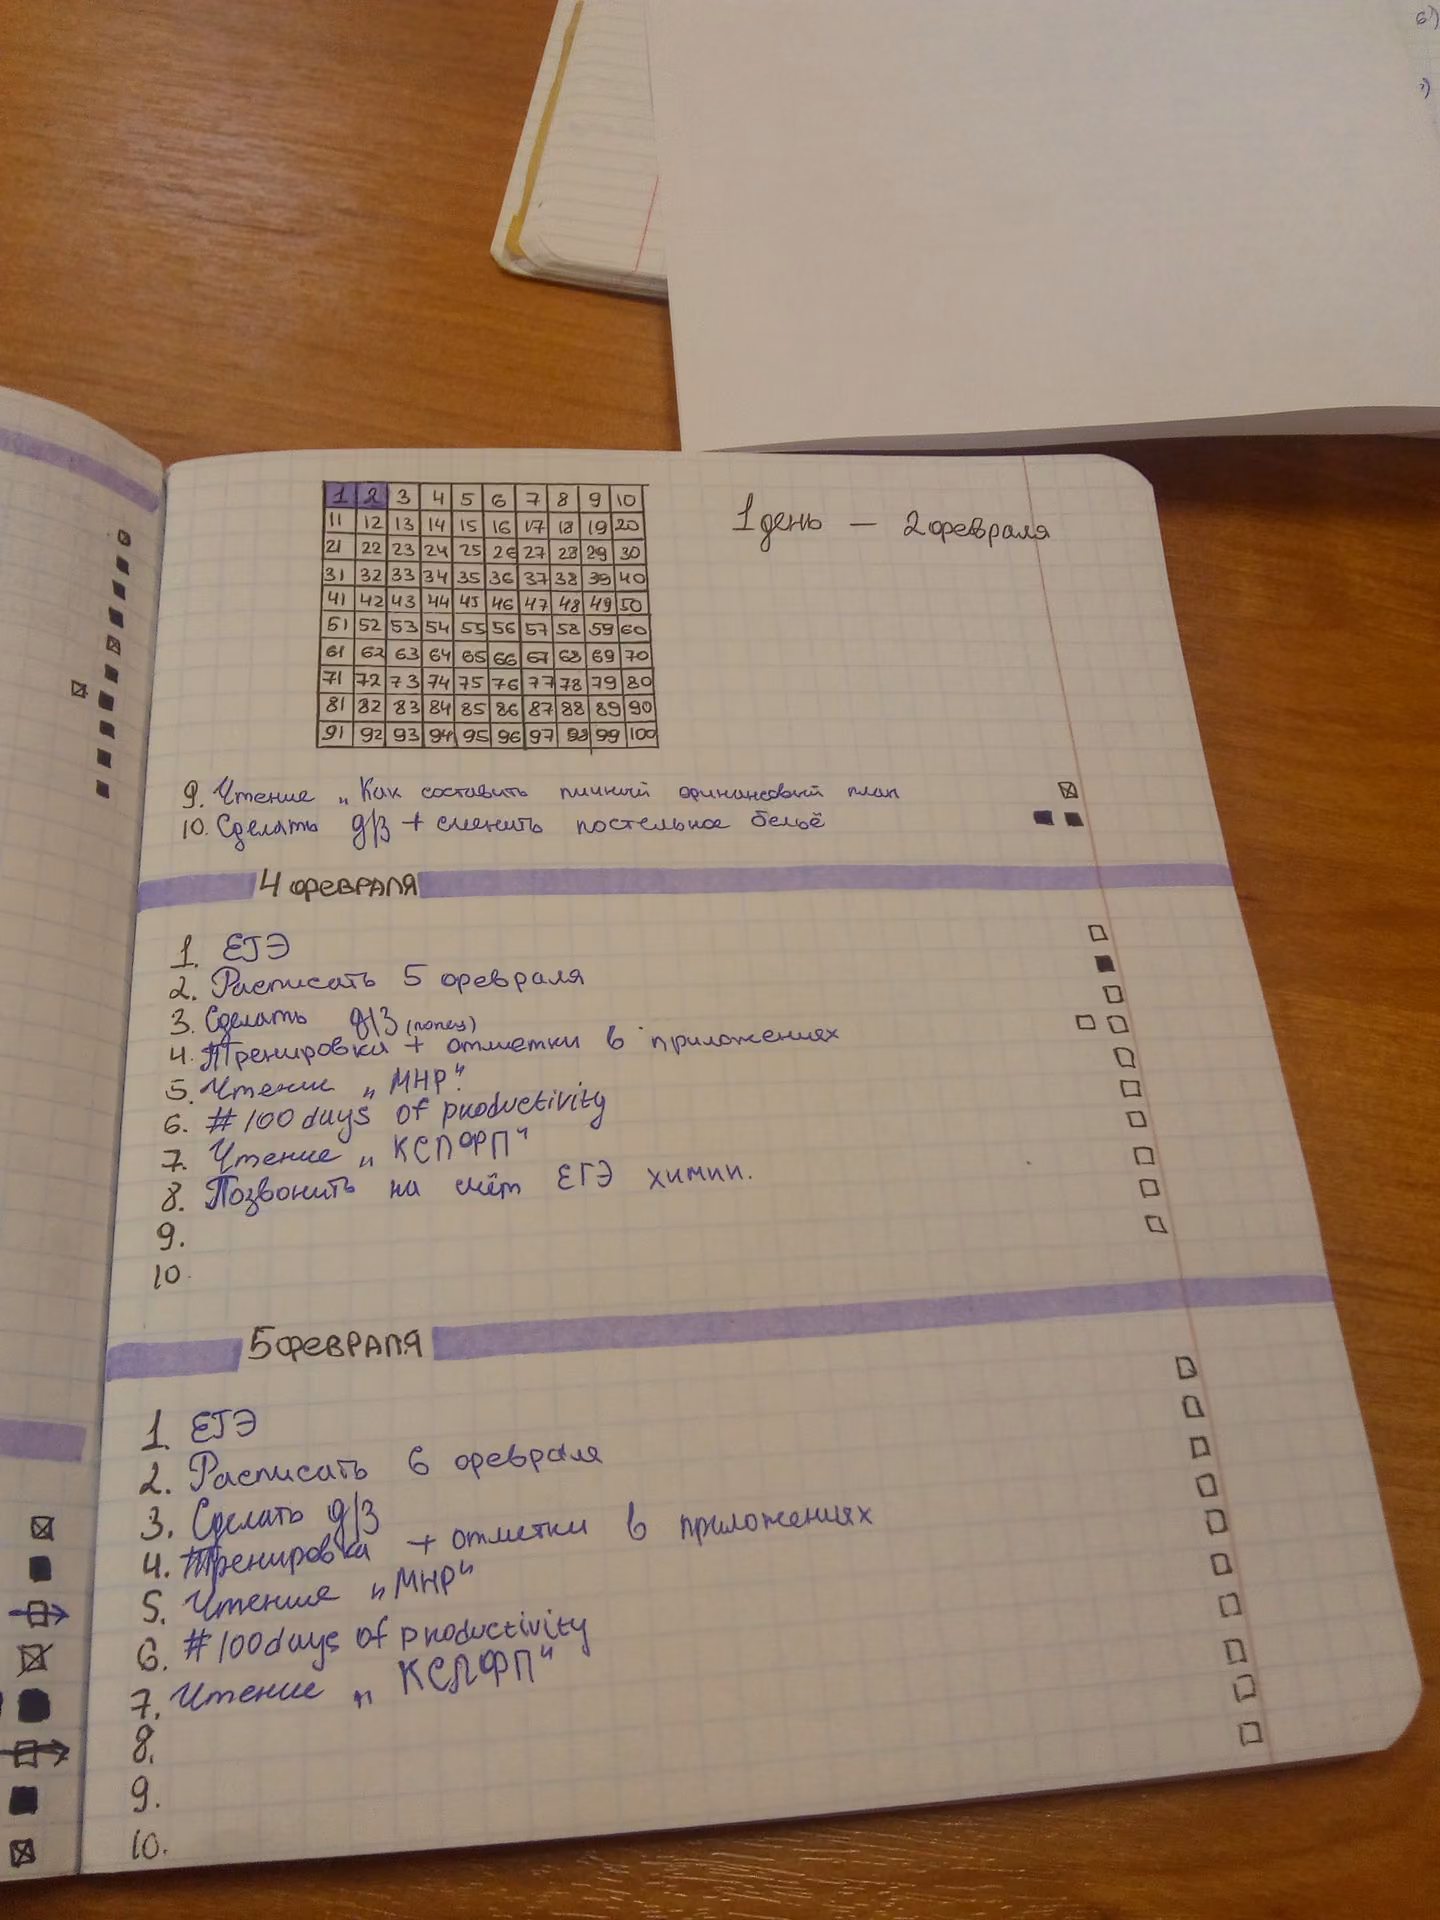 1 2 3 4 5 6 7 8 9 10
11 12 13 14 15 16 17 18 19 20
21 22 23 24 25 26 27 28 29 30
31 32 33 34 35 36 37 38 39 40
41 42 43 44 45 46 47 48 49 50
51 52 53 54 55 56 57 58 59 60
61 62 63 64 65 66 67 68 69 70
71 72 73 74 75 76 77 78 79 80
81 82 83 84 85 86 87 88 89 90
91 92 93 94 95 96 97 98 99 100
1 день — 2 февраля
9. Чтение „Как составить личный финансовый план
10. Сделать д/з + сменить постельное бельё
4 ФЕВРАЛЯ
1. ЕГЭ
2. Расписать 5 февраля
3. Сделать д/з
4. Тренировка + отметки в приложениях
5. Чтение „МНР".
6. #100days of productivity
7. Чтение „КСЛФП"
8. Позвонить на счёт ЕГЭ химии.
9.
10.
5 ФЕВРАЛЯ
1. ЕГЭ
2. Расписать 6 февраля
3. Сделать д/з
4. Тренировка + отметки в приложениях
5. Чтение „МНР"
6. #100days of productivity
7. Чтение „КСЛФП"
8.
9.
10.